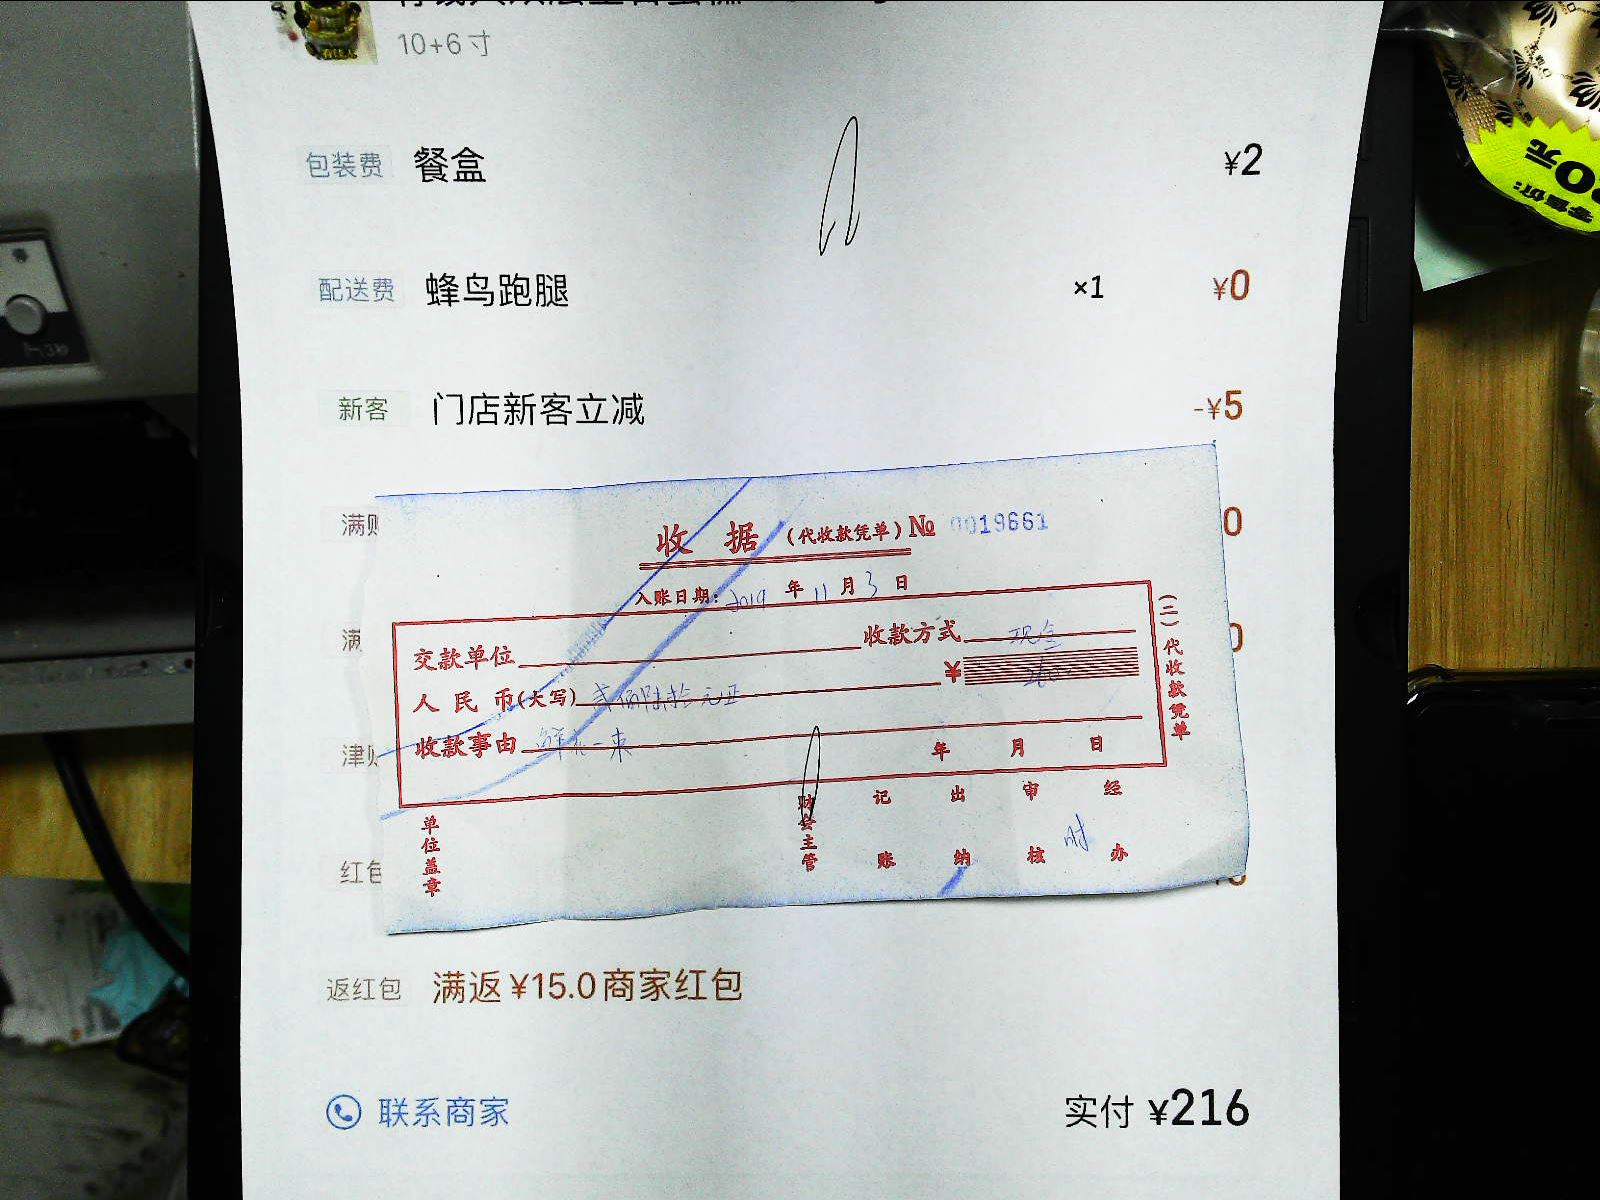 10+6寸
包装费 餐盒 ¥2
配送费 蜂鸟跑腿 ×1 ¥0
新客 门店新客立减 -¥5
满
收 据 (代收款凭单) № 0019661
入账日期: 2019 年 11 月 3 日
交款单位 收款方式 现金
人民币(大写) 贰佰陆拾元正 ¥ 260
收款事由 鲜花一束
年 月 日
(二)代收款凭单
单位盖章 财会主管 记账 出纳 审核 经办
满
津
红包
返红包 满返¥15.0商家红包
联系商家 实付 ¥216
零售价:
0元